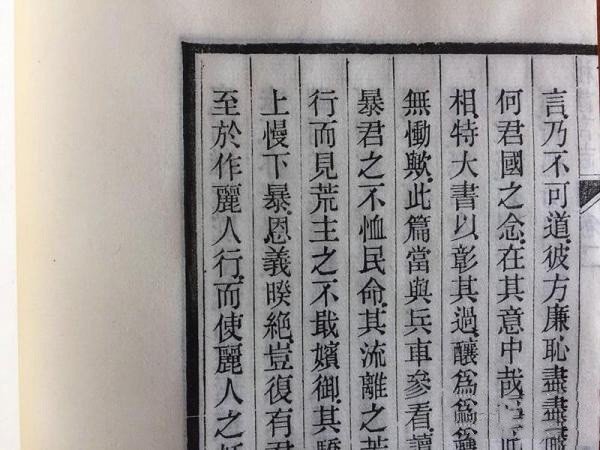 言、乃不可道、彼方廉恥盡
何君國之念、在其意中哉
相、特大書以彰其過、釀為
無慟歟、此篇當與兵車參看、讀
暴君之不恤民命、其流離之苦
行而見荒主之不戢嬪御、其驕
上慢下暴、恩義暌絕、豈復有君
至於作麗人行、而使麗人之